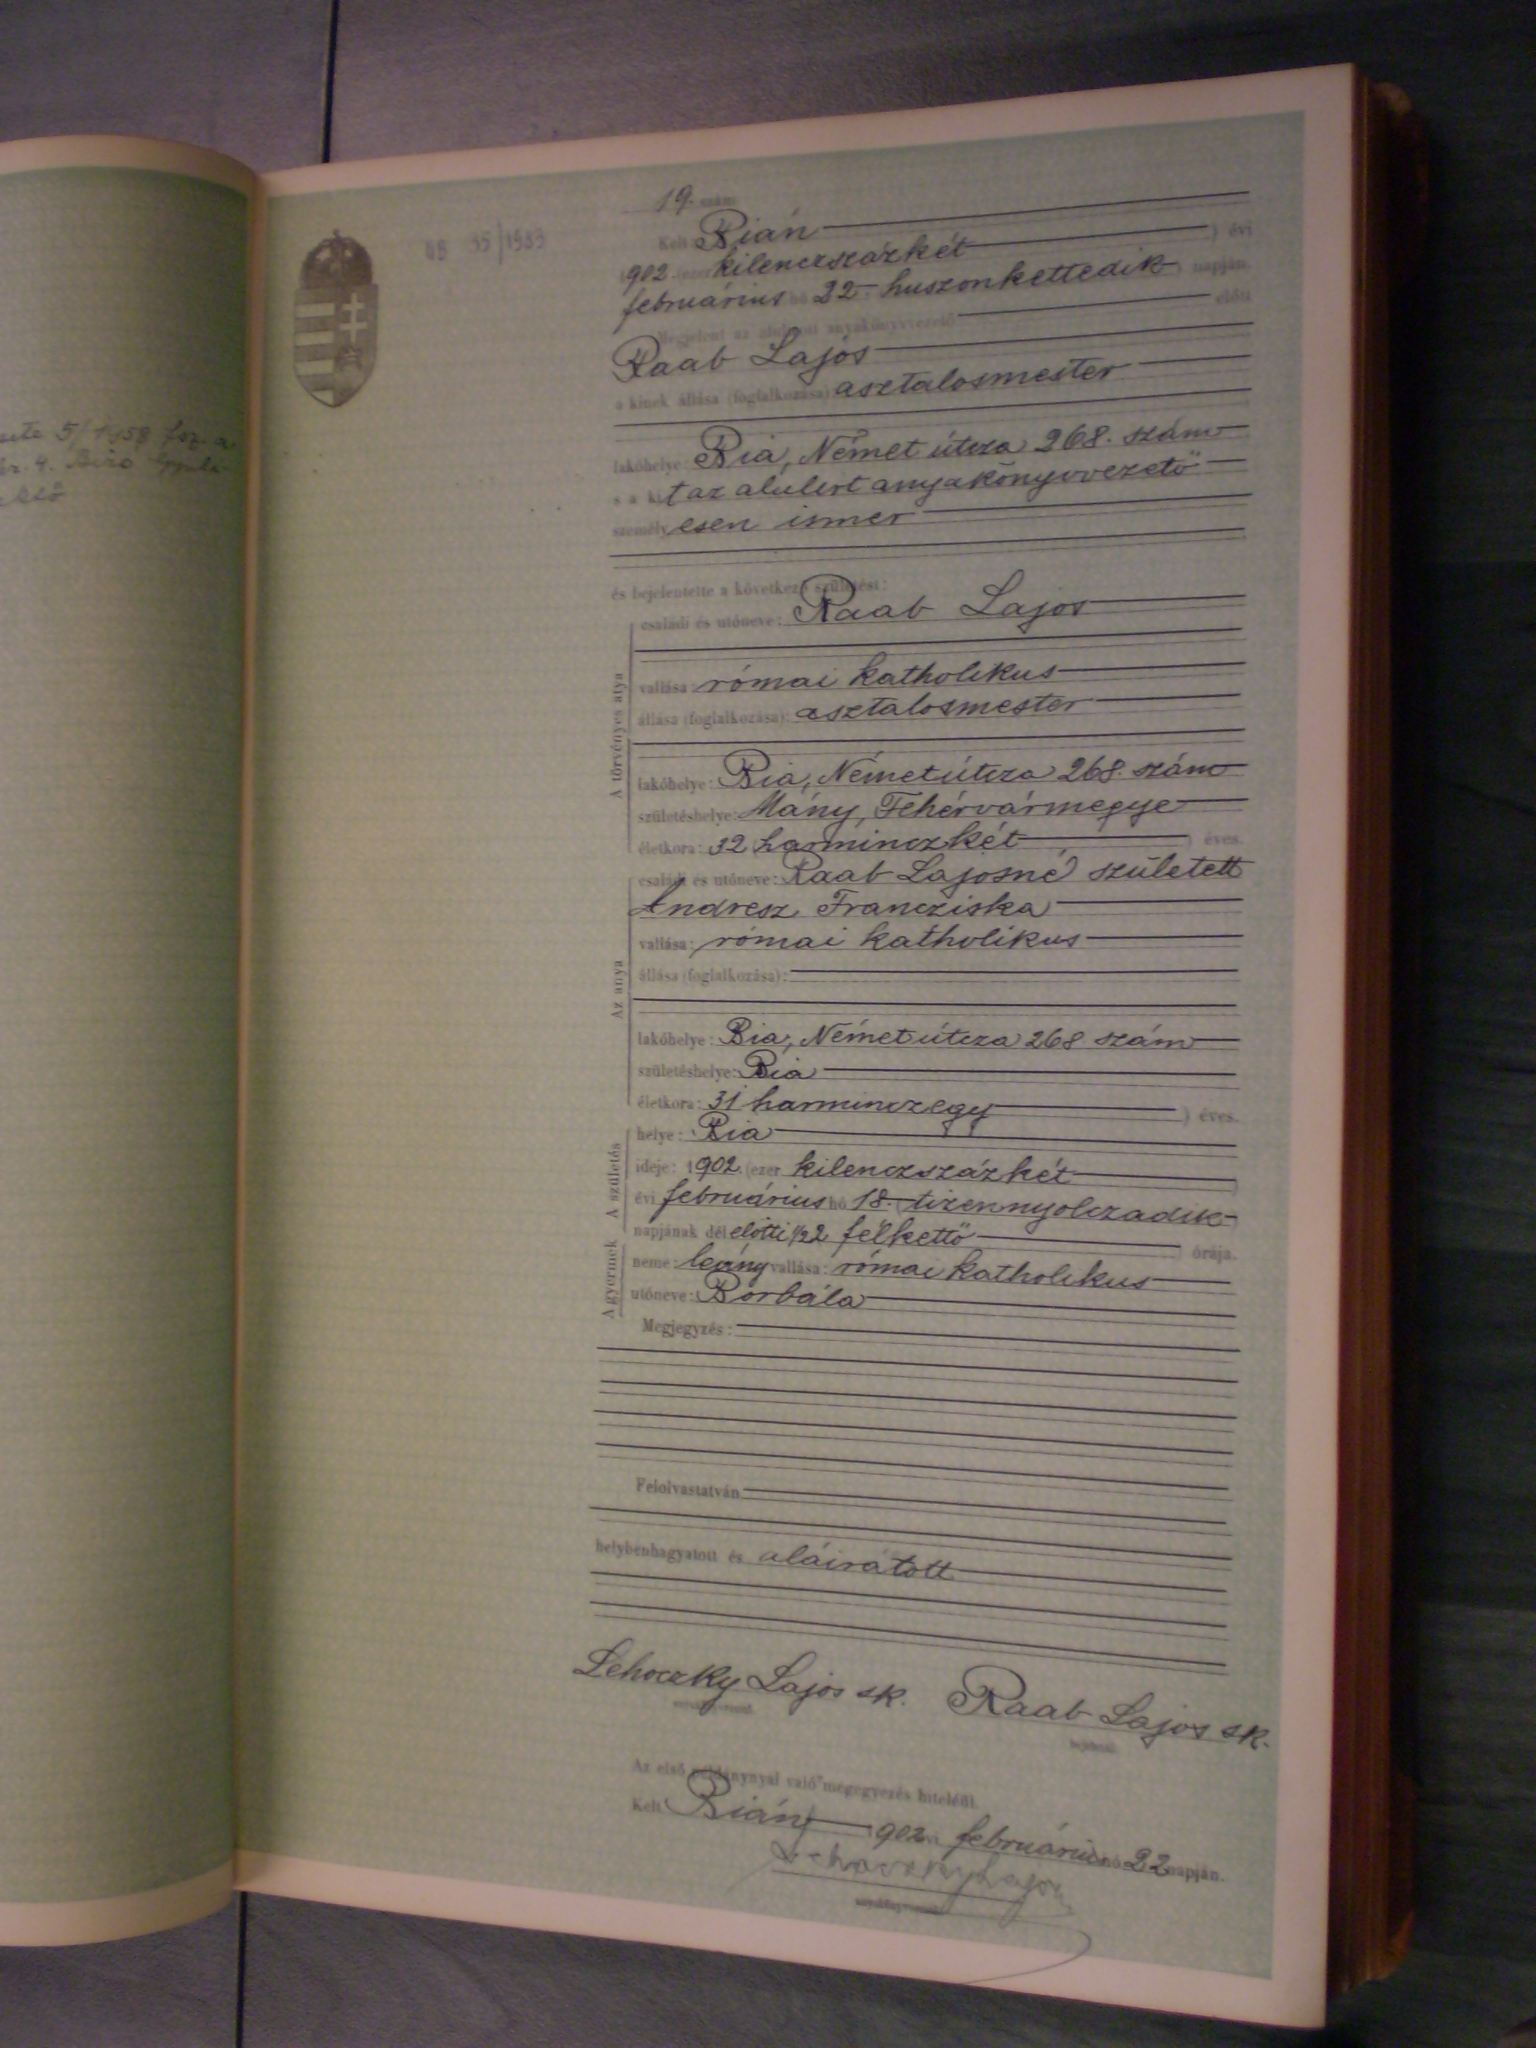 35/1983
19. szám
Kelt Bián évi
1902 (ezer kilenczszázkét
februárius hó 22 huszonkettedik napján.
Megjelent az alulirott anyakönyvvezető előtt
Raab Lajos
a kinek állása (foglalkozása) asztalosmester
lakóhelye: Bia, Német útcza 268. szám
s a kit az alulirt anyakönyvvezető
személyesen ismer
és bejelentette a következő születést:
A törvényes atya
családi és utóneve: Raab Lajos
vallása: római katholikus
állása (foglalkozása): asztalosmester
lakóhelye: Bia, Német útcza 268. szám
születéshelye: Mány, Fehérvármegye
életkora: 32 harminczkét ) éves.
Az anya
családi és utóneve: Raab Lajosné született
Andresz Francziska
vallása: római katholikus
állása (foglalkozása):
lakóhelye: Bia, Német útcza 268 szám
születéshelye: Bia
életkora: 31 harminczegy ) éves.
A születés
helye: Bia
ideje: 1902 (ezer kilenczszázkét )
évi februárius hó 18. (tizennyolczadik )
napjának délelőtti ½2 félkettő ) órája.
A gyermek
neme: leány vallása: római katholikus
utóneve: Borbála
Megjegyzés:
Felolvastatván
helybenhagyatott és aláiratott
Lehoczky Lajos sk. Raab Lajos sk.
anyakönyvvezető. bejelentő.
Az első példánynyal való megegyezés hiteléül.
Kelt Bián 1902 februárius hó 22 napján.
Lehoczky Lajos
anyakönyvvezető.
5/1958